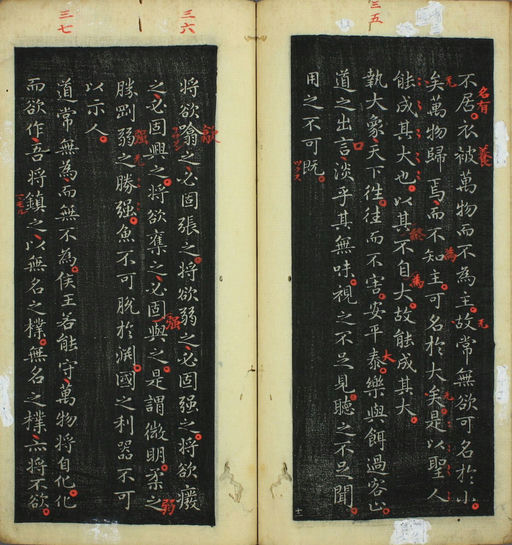 三五
不居。衣被萬物而不為主。故常無欲可名於小
矣。萬物歸焉。而不知主。可名於大矣。是以聖人
能成其大也。以其不自大。故能成其大。
執大象。天下往。往而不害。安平泰。樂與餌過客止。
道之出言。淡乎其無味。視之不足見。聽之不足聞。
用之不可既。
名有
無
為
終
為
無
大
口
ツクス
十一
三六
将欲噏之。必固張之。将欲弱之。必固强之。将欲癈
之。必固興之。将欲奪之。必固與之。是謂微明。柔之
勝剛弱之勝强。魚不可脫於淵。國之利器不可
以示人。
歙
强
强
弱
三七
道常無為。而無不為。侯王若能守。萬物将自化。化
而欲作。吾将鎮之。以無名之樸。無名之樸。亦将不欲。